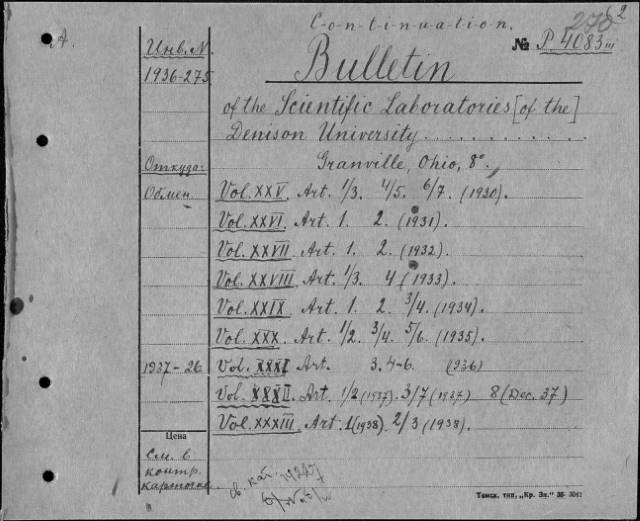 C-o-n-t-i-n-u-a-t-i-o-n.
A.
Инв. N.
№ P. 4083 III
1936-275
Bulletin
of the Scientific Laboratories [of the]
Denison University
Granville, Ohio, 8°.
Откуда:
Обмен.
Vol. XXV. Art. 1/3. 4/5. 6/7. (1930).
Vol. XXVI. Art. 1. 2. (1931).
Vol. XXVII Art. 1. 2. (1932).
Vol. XXVIII Art. 1/3. 4 (1933).
Vol. XXIX Art. 1. 2. 3/4. (1934).
Vol. XXX. Art. 1/2. 3/4. 5/6. (1935).
1937-26 Vol. XXXI Art. 3. 4-6. (1936)
Vol. XXXII. Art. 1/2 (1937). 3/7 (1937) 8 (Dec. 37)
Vol. XXXIII. Art. 1 (1938). 2/3 (1938).
Цена
См. в
контр.
карточке
св. кат.
Томск, тип. „Кр. Зн."